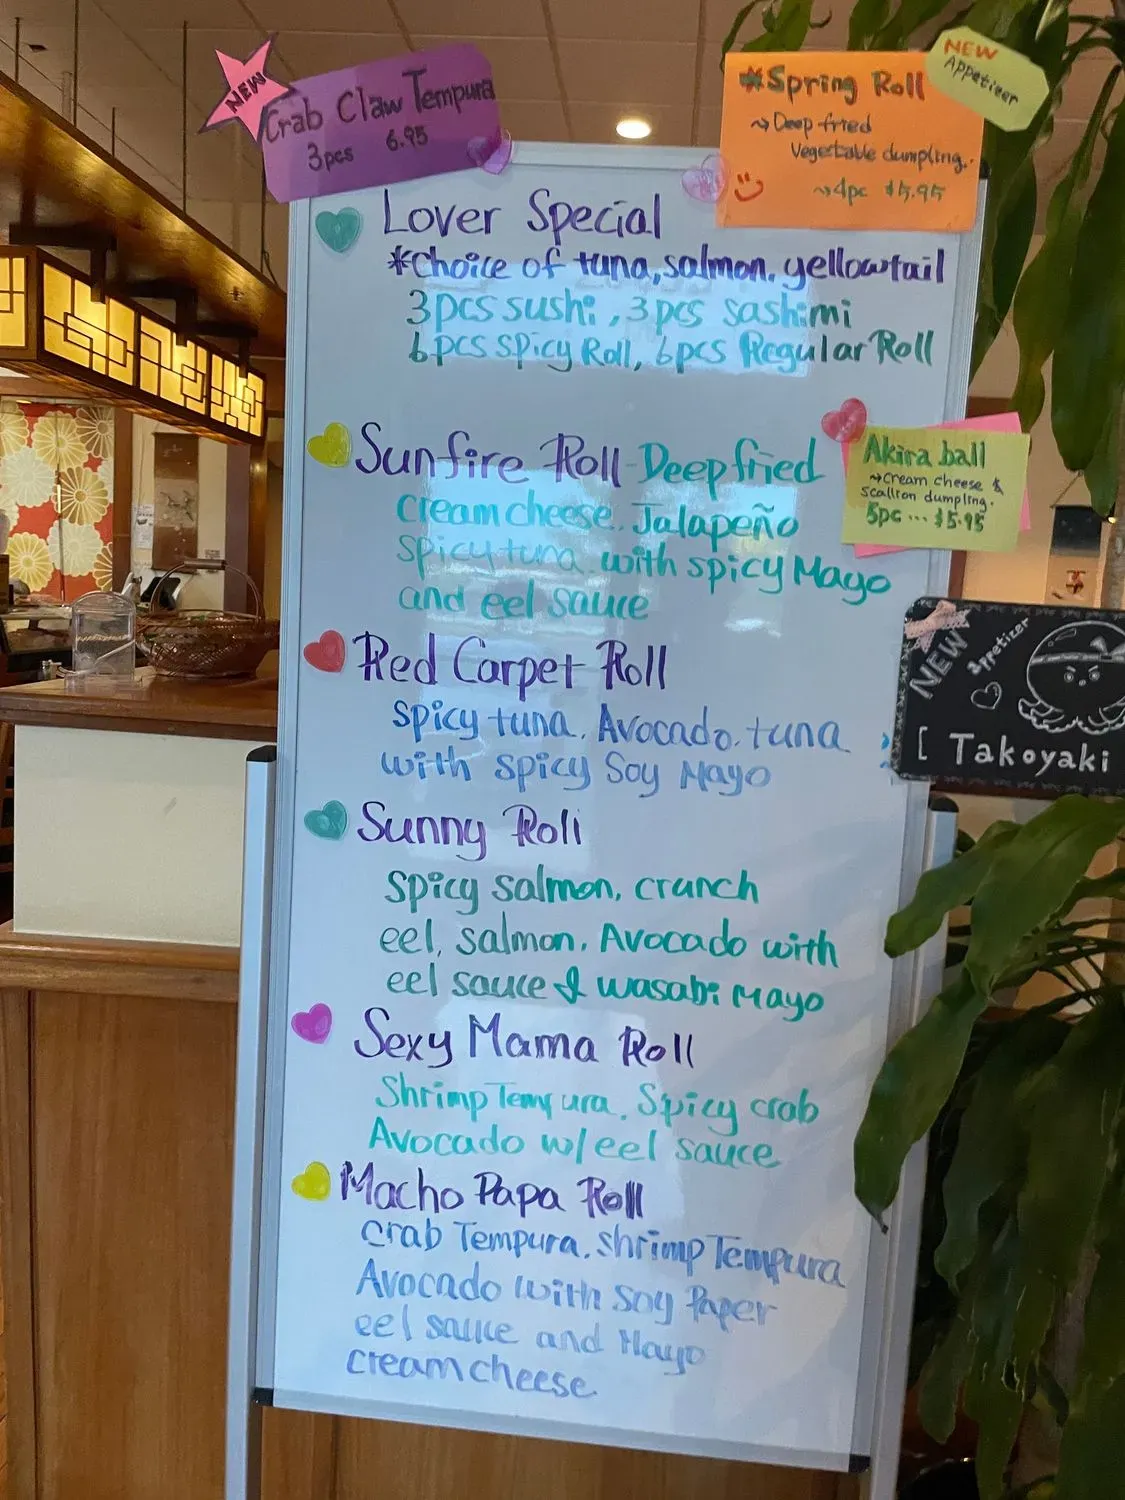 NEW
Crab Claw Tempura
3pcs 6.95
NEW
Appetizer
*Spring Roll
Deep fried
Vegetable dumpling.
4pc $5.95
Lover Special
*Choice of tuna, salmon, yellowtail
3pcs sushi, 3pcs sashimi
6pcs spicy Roll, 6pcs Regular Roll
Sunfire Roll Deep fried
cream cheese, Jalapeño
spicy tuna with spicy Mayo
and eel sauce
Akira ball
cream cheese &
scallion dumpling.
5pc... $5.95
Red Carpet Roll
spicy tuna, Avocado, tuna
with spicy Soy Mayo
NEW
appetizer
[ Takoyaki
Sunny Roll
spicy salmon, crunch
eel, salmon, Avocado with
eel sauce & wasabi Mayo
Sexy Mama Roll
Shrimp Tempura, Spicy crab
Avocado w/ eel sauce
Macho Papa Roll
crab Tempura, shrimp Tempura
Avocado with Soy Paper
eel sauce and Mayo
cream cheese